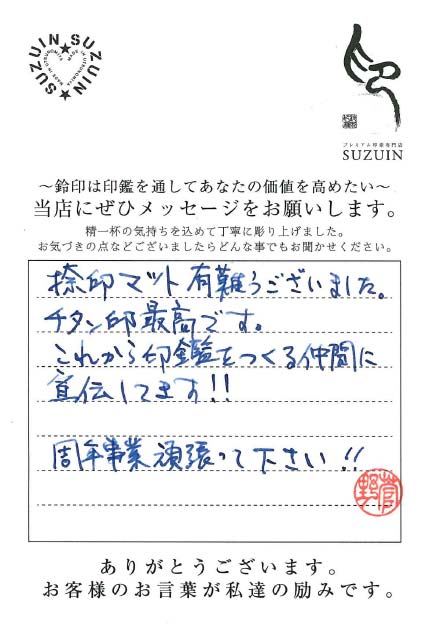 SUZUIN★SUZUIN★
プレミアム印章専門店
SUZUIN
～鈴印は印鑑を通してあなたの価値を高めたい～
当店にぜひメッセージをお願いします。
精一杯の気持ちを込めて丁寧に彫り上げました。
お気づきの点などございましたらどんな事でもお聞かせください。
捺印マット有難うございました。
チタン印最高です。
これから印鑑をつくる仲間に
宣伝してます!!
周年事業頑張って下さい!!
菅野
ありがとうございます。
お客様のお言葉が私達の励みです。